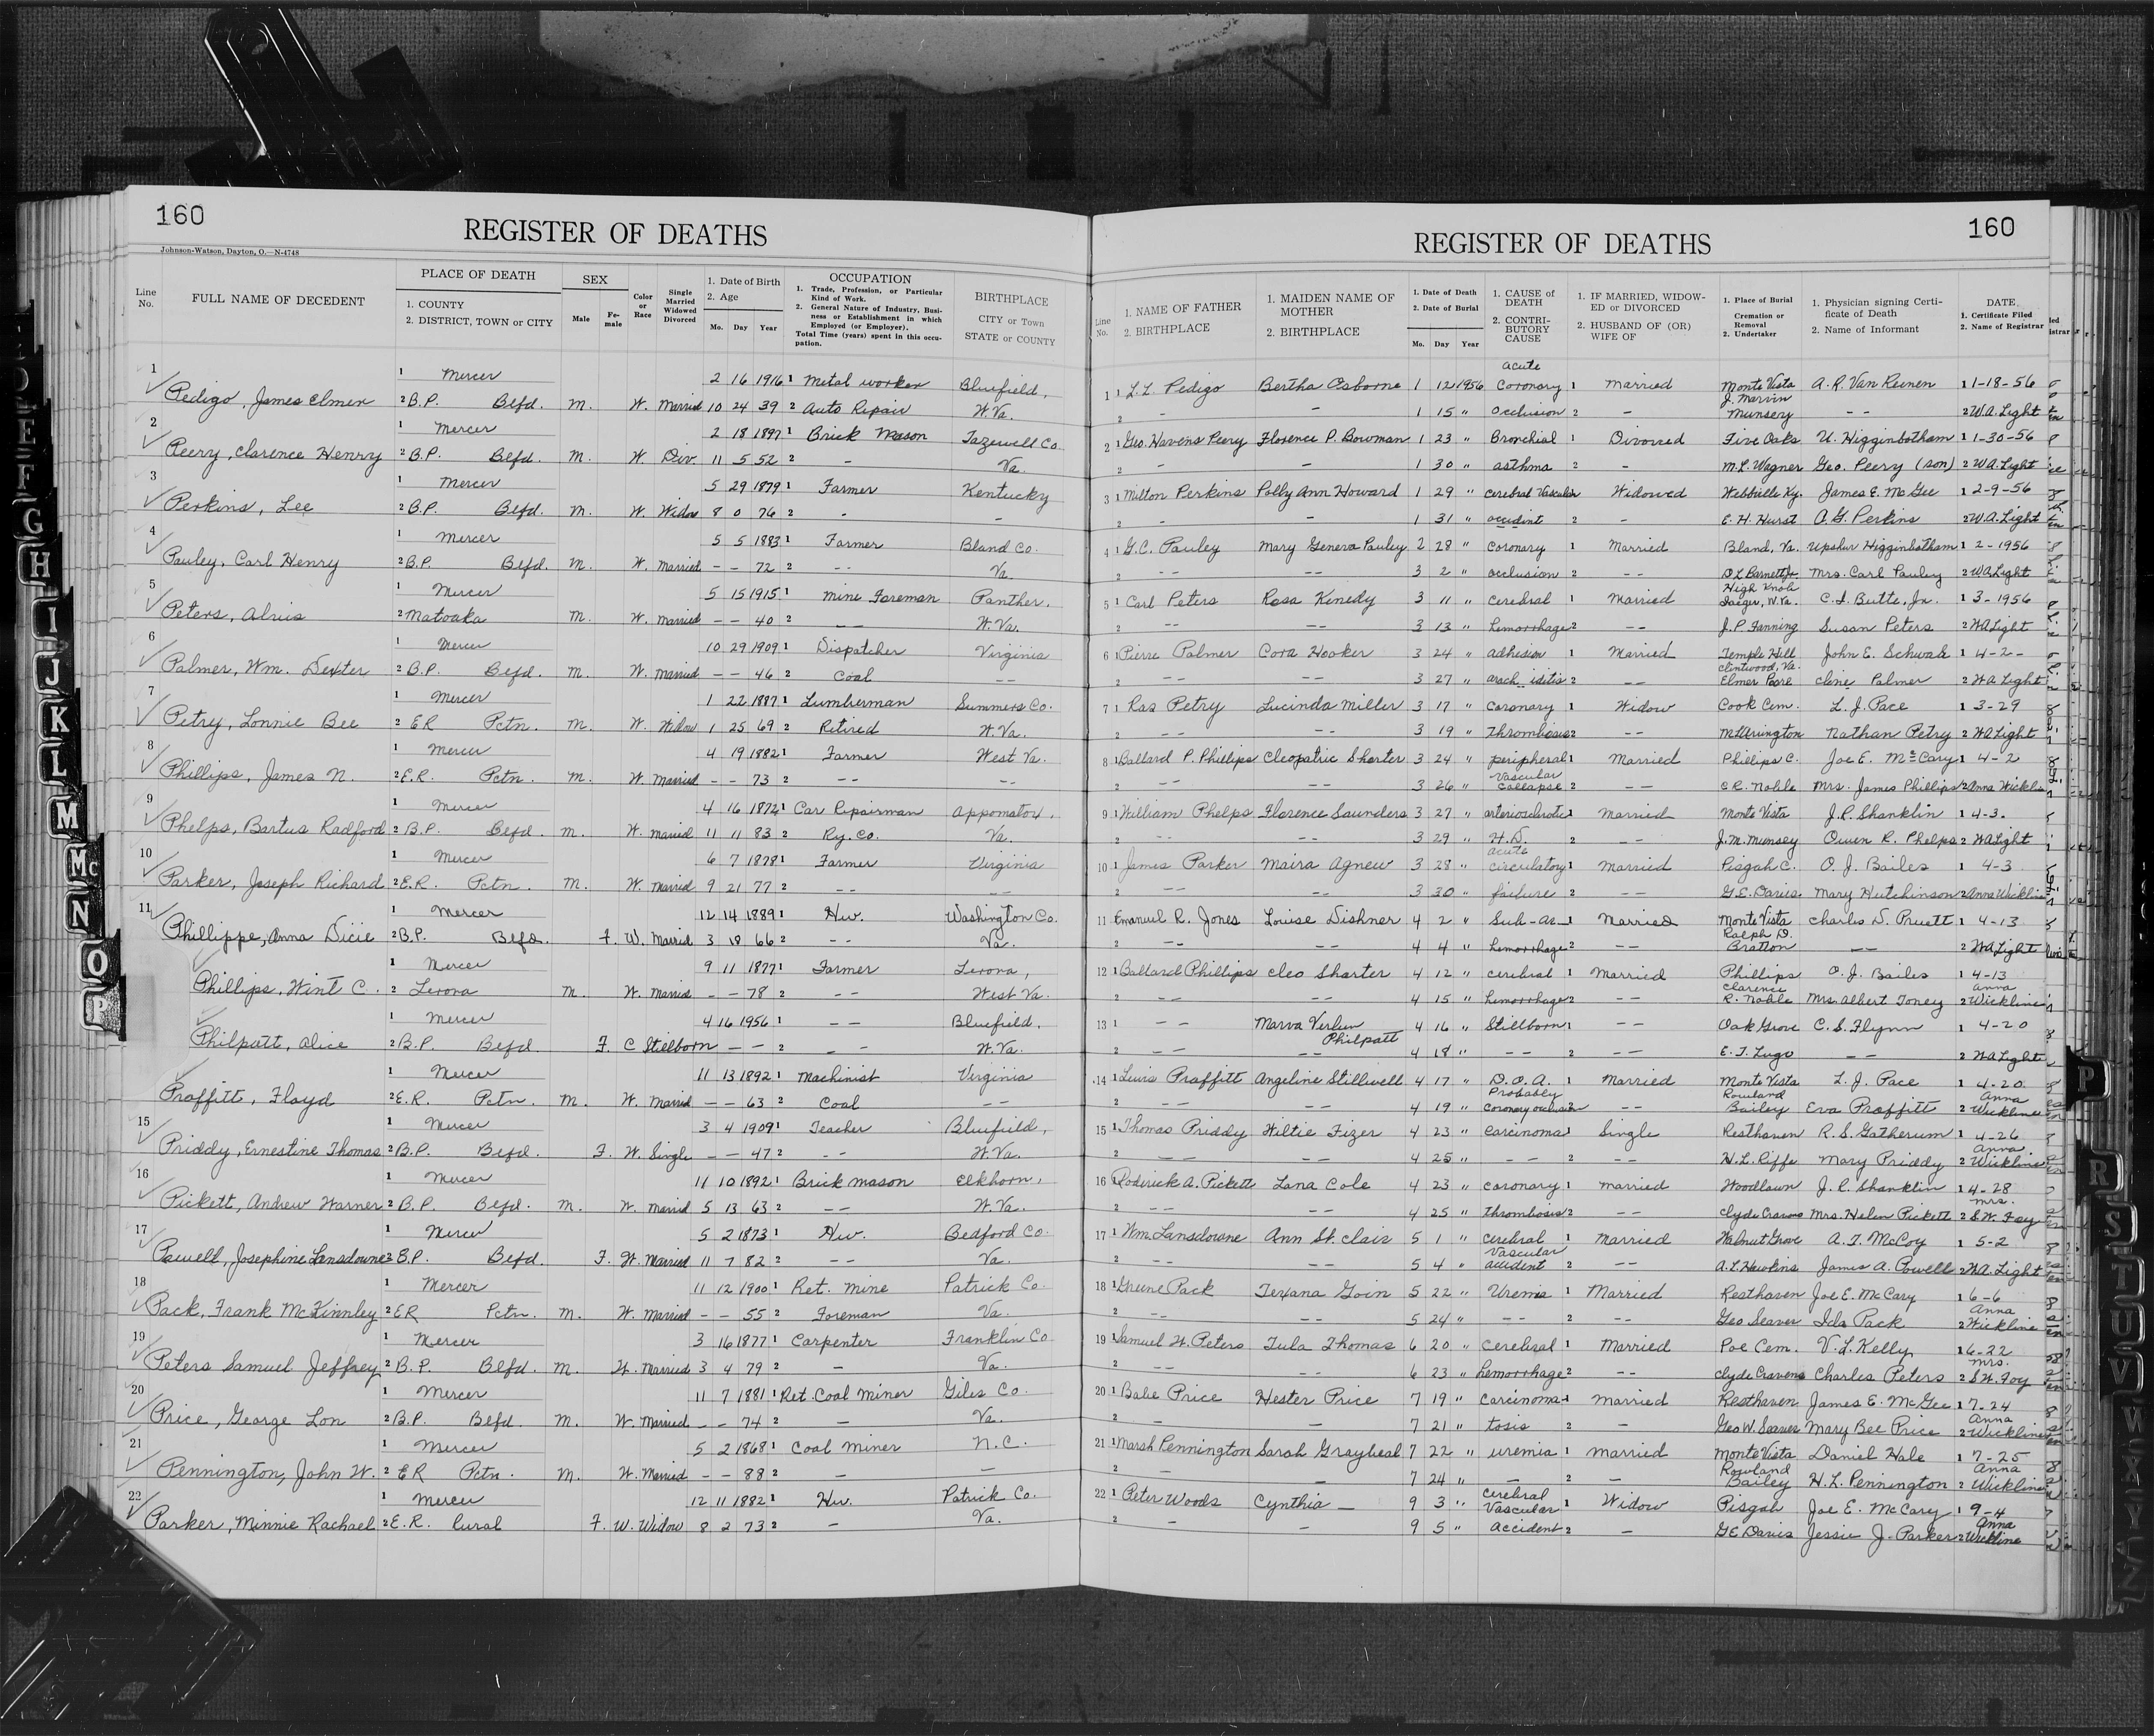 160
REGISTER OF DEATHS
Johnson-Watson, Dayton, O.—N-4748
Line No. FULL NAME OF DECEDENT PLACE OF DEATH 1. COUNTY 2. DISTRICT, TOWN or CITY SEX Male Female Color or Race Single Married Widowed Divorced 1. Date of Birth 2. Age Mo. Day Year OCCUPATION 1. Trade, Profession, or Particular Kind of Work. 2. General Nature of Industry, Business or Establishment in which Employed (or Employer). Total Time (years) spent in this occupation. BIRTHPLACE CITY or Town STATE or COUNTY
1 1 Mercer 2 16 1916 1 Metal worker Bluefield,
Pedigo, James Elmer 2 B.P. Blfd. M. W. Married 10 24 39 2 Auto Repair W.Va.
2 1 Mercer 2 18 1897 1 Brick Mason Tazewell Co.
Peery, Clarence Henry 2 B.P. Blfd. M. W. Div. 11 5 52 2 - Va.
3 1 Mercer 5 29 1879 1 Farmer Kentucky
Perkins, Lee 2 B.P. Blfd. M. W. Widow 8 0 76 2 - -
4 1 Mercer 5 5 1883 1 Farmer Bland Co.
Pauley, Carl Henry 2 B.P. Blfd. M. W. Married - - 72 2 -- Va.
5 1 Mercer 5 15 1915 1 Mine Foreman Panther,
Peters, Alvis 2 Matoaka M. W. Married - - 40 2 -- W.Va.
6 1 Mercer 10 29 1909 1 Dispatcher Virginia
Palmer, Wm. Dexter 2 B.P. Blfd. M. W. Married - - 46 2 Coal --
7 1 Mercer 1 22 1887 1 Lumberman Summers Co.
Petry, Lonnie Bee 2 ER Pctn. M. W. Widow 1 25 69 2 Retired W.Va.
8 1 Mercer 4 19 1882 1 Farmer West Va.
Phillips, James N. 2 E.R. Pctn. M. W. Married - - 73 2 -- --
9 1 Mercer 4 16 1872 1 Car Repairman Appomatox,
Phelps, Bartus Radford 2 B.P. Blfd. M. W. Married 11 11 83 2 Ry. Co. Va.
10 1 Mercer 6 7 1878 1 Farmer Virginia
Parker, Joseph Richard 2 E.R. Pctn. M. W. Married 9 21 77 2 -- --
11 1 Mercer 12 14 1889 1 Hw. Washington Co.
Phillippe, Anna Dicie 2 B.P. Blfd. F. W. Married 3 18 66 2 -- Va.
1 Mercer 9 11 1877 1 Farmer Lerona,
Phillips, Wint C. 2 Lerona M. W. Married - - 78 2 -- West Va.
1 Mercer 4 16 1956 1 -- Bluefield,
Philpatt, Alice 2 B.P. Blfd. F. C Stillborn - - 2 -- W.Va.
1 Mercer 11 13 1892 1 Machinist Virginia
Proffitt, Floyd 2 E.R. Pctn. M. W. Married - - 63 2 Coal --
15 1 Mercer 3 4 1909 1 Teacher Bluefield,
Priddy, Ernestine Thomas 2 B.P. Blfd. F. W. Single - - 47 2 -- W.Va.
16 1 Mercer 11 10 1892 1 Brick mason Elkhorn,
Pickett, Andrew Warner 2 B.P. Blfd. M. W. Married 5 13 63 2 -- W.Va.
17 1 Mercer 5 2 1873 1 Hw. Bedford Co.
Powell, Josephine Lansdowne 2 B.P. Blfd. F. W. Married 11 7 82 2 -- Va.
18 1 Mercer 11 12 1900 1 Ret. mine Patrick Co.
Pack, Frank McKinnley 2 ER Pctn. M. W. Married - - 55 2 Foreman Va.
19 1 Mercer 3 16 1877 1 Carpenter Franklin Co
Peters Samuel Jeffrey 2 B.P. Blfd. M. W. Married 3 4 79 2 - Va.
20 1 Mercer 11 7 1881 1 Ret. Coal Miner Giles Co.
Price, George Lon 2 B.P. Blfd. M. W. Married - - 74 2 - Va.
21 1 Mercer 5 2 1868 1 Coal Miner N.C.
Pennington, John W. 2 ER Pctn. M. W. Married - - 88 2 - -
22 1 Mercer 12 11 1882 1 Hw. Patrick Co.
Parker, Minnie Rachael 2 E.R. Rural F. W. Widow 8 2 73 2 - Va.
160
REGISTER OF DEATHS
Line No. 1. NAME OF FATHER 2. BIRTHPLACE 1. MAIDEN NAME OF MOTHER 2. BIRTHPLACE 1. Date of Death 2. Date of Burial Mo. Day Year 1. CAUSE of DEATH 2. CONTRIBUTORY CAUSE 1. IF MARRIED, WIDOWED or DIVORCED 2. HUSBAND OF (OR) WIFE OF 1. Place of Burial Cremation or Removal 2. Undertaker 1. Physician signing Certificate of Death 2. Name of Informant DATE 1. Certificate Filed 2. Name of Registrar
1 1 L. L. Pedigo Bertha Osborne 1 12 1956 acute Coronary 1 Married Monte Vista A. R. Van Reenen 1 1-18-56
2 - - 1 15 " Occlusion 2 - J. Marvin Munsery -- 2 W.A. Light
2 1 Geo. Havens Peery Florence P. Bowman 1 23 " Bronchial 1 Divorced Five Oaks U. Higginbotham 1 1-30-56
2 - - 1 30 " asthma 2 - M. L. Wagner Geo. Peery (son) 2 W.A. Light
3 1 Milton Perkins Polly Ann Howard 1 29 " cerebral Vascular Widowed Webbville Ky. James E. McGee 1 2-9-56
2 - - 1 31 " accident 2 - E. H. Hurst O. G. Perkins 2 W.A. Light
4 1 G.C. Pauley Mary Geneva Pauley 2 28 " Coronary 1 Married Bland, Va. Upshur Higginbotham 1 2-1956
2 -- -- 3 2 " occlusion 2 -- D L Barnett Jr Mrs. Carl Pauley 2 W A Light
5 1 Carl Peters Rosa Kinedy 3 11 " cerebral 1 Married High Knob Iaeger, W.Va. C. I. Butte, Jr. 1 3-1956
2 -- -- 3 13 " hemorrhage 2 -- J. P. Fanning Susan Peters 2 W A Light
6 1 Pierre Palmer Cora Hooker 3 24 " adhesion 1 Married Temple Hill John E. Schwab 1 4-2-
2 -- -- 3 27 " arach iditis 2 -- Clintwood, Va. Elmer Pore Cline Palmer 2 W A Light
7 1 Ras Petry Lucinda Miller 3 17 " Coronary 1 Widow Cook Cem. L. J. Pace 1 3-29
2 -- -- 3 19 " Thrombosis 2 -- Nathan Petry 2 W A Light
8 1 Ballard P. Phillips Cleopatric Sharter 3 24 " peripheral 1 Married Phillips C. Joe E. McCary 1 4-2
2 -- -- 3 26 " Vascular Collapse 2 -- C R. Noble Mrs. James Phillips 2 Anna Wickline
9 1 William Phelps Florence Saunders 3 27 " arteriosclerotic 1 Married Monte Vista J. R. Shanklin 1 4-3.
2 -- -- 3 29 " H.D. 2 -- J. M. Munsey Owen R. Phelps 2 W A Light
10 1 James Parker Maira Agnew 3 28 " acute circulatory 1 Married Pisgah C. O. J. Bailes 1 4-3
2 -- -- 3 30 " failure 2 -- G. E. Davis. Mary Hutchinson 2 Anna Wickline
11 Emanuel R. Jones Louise Dishner 4 2 " Sub-ar 1 Married Monte Vista Charles D. Pruett 1 4-13
2 -- -- 4 4 " hemorrhage 2 -- Ralph D. Bratton -- 2 W A Light
12 1 Ballard Phillips Cleo Sharter 4 12 " cerebral 1 Married Phillips O. J. Bailes 1 4-13
2 -- -- 4 15 " hemorrhage 2 -- Clarence R. Noble Mrs. Albert Toney 2 Anna Wickline
13 1 -- Marva Philpatt 4 16 " Stillborn 1 -- Oak Grove C. S. Flynn 1 4-20
2 -- -- 4 18 " -- 2 -- E. T. Lugo -- 2 W A Light
14 1 Lewis Proffitt Angeline Stillwell 4 17 " D.O.A. 1 Married Monte Vista L. J. Pace 1 4-20
2 -- -- 4 19 " Probably coronary occlusion 2 -- Rowland Bailey Eva Proffitt 2 Anna Wickline
15 1 Thomas Priddy Wiltie Fizer 4 23 " Carcinoma 1 Single Resthaven R. S. Gatherum 1 4-26
2 -- -- 4 25 " -- 2 -- H. L. Riffe Mary Priddy 2 Anna Wickline
16 Roderick A. Pickett Lana Cole 4 23 " Coronary 1 Married Woodlawn J. R. Shanklin 1 4-28
2 -- -- 4 25 " thrombosis 2 -- Clyde Cravens Mrs. Helen Pickett 2 Mrs. S.W. Foy
17 1 Wm Lansdowne Ann St. Clair 5 1 " cerebral 1 Married Walnut Grove A. T. McCoy 1 5-2
2 -- -- 5 4 " Vascular accident 2 -- A. L. Hawkins James A. Powell 2 W.A. Light
18 1 Greene Pack Texana Goin 5 22 " Uremia 1 Married Resthaven Joe E. McCary 1 6-6
2 -- -- 5 24 " -- 2 -- Geo Seaver Ida Pack 2 Anna Wickline
19 1 Samuel H. Peters Tula Thomas 6 20 " Cerebral 1 Married Poe Cem. V. L. Kelly 1 6-22
2 -- -- 6 23 " hemorrhage 2 -- Clyde Cravens Charles Peters 2 Mrs. S.W. Foy
20 1 Babe Price Hester Price 7 19 " Carcinoma 1 Married Resthaven James E. McGee 1 7-24
2 - - 7 21 " tosis 2 - Geo W. Seaver Mary Bee Price 2 Anna Wickline
21 1 Marsh Pennington Sarah Graybeal 7 22 " uremia 1 Married Monte Vista Daniel Hale 1 7-25
2 - - 7 24 " - 2 - Rowland Bailey H. L. Pennington 2 Anna Wickline
22 1 Peter Woods Cynthia - 9 3 " cerebral Vascular 1 Widow Pisgah Joe E. McCary 1 9-4
2 - - 9 5 " Accident 2 - G E Davis Jessie J. Parker 2 Anna Wickline
E
F
G
H
I
J
K
L
M
Mc
N
O
P
P
R
S
T
U
V
W